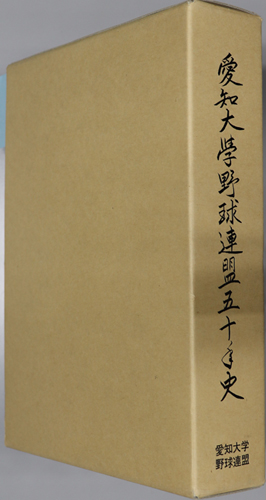 愛知大學野球連盟五十年史
愛知大学
野球連盟